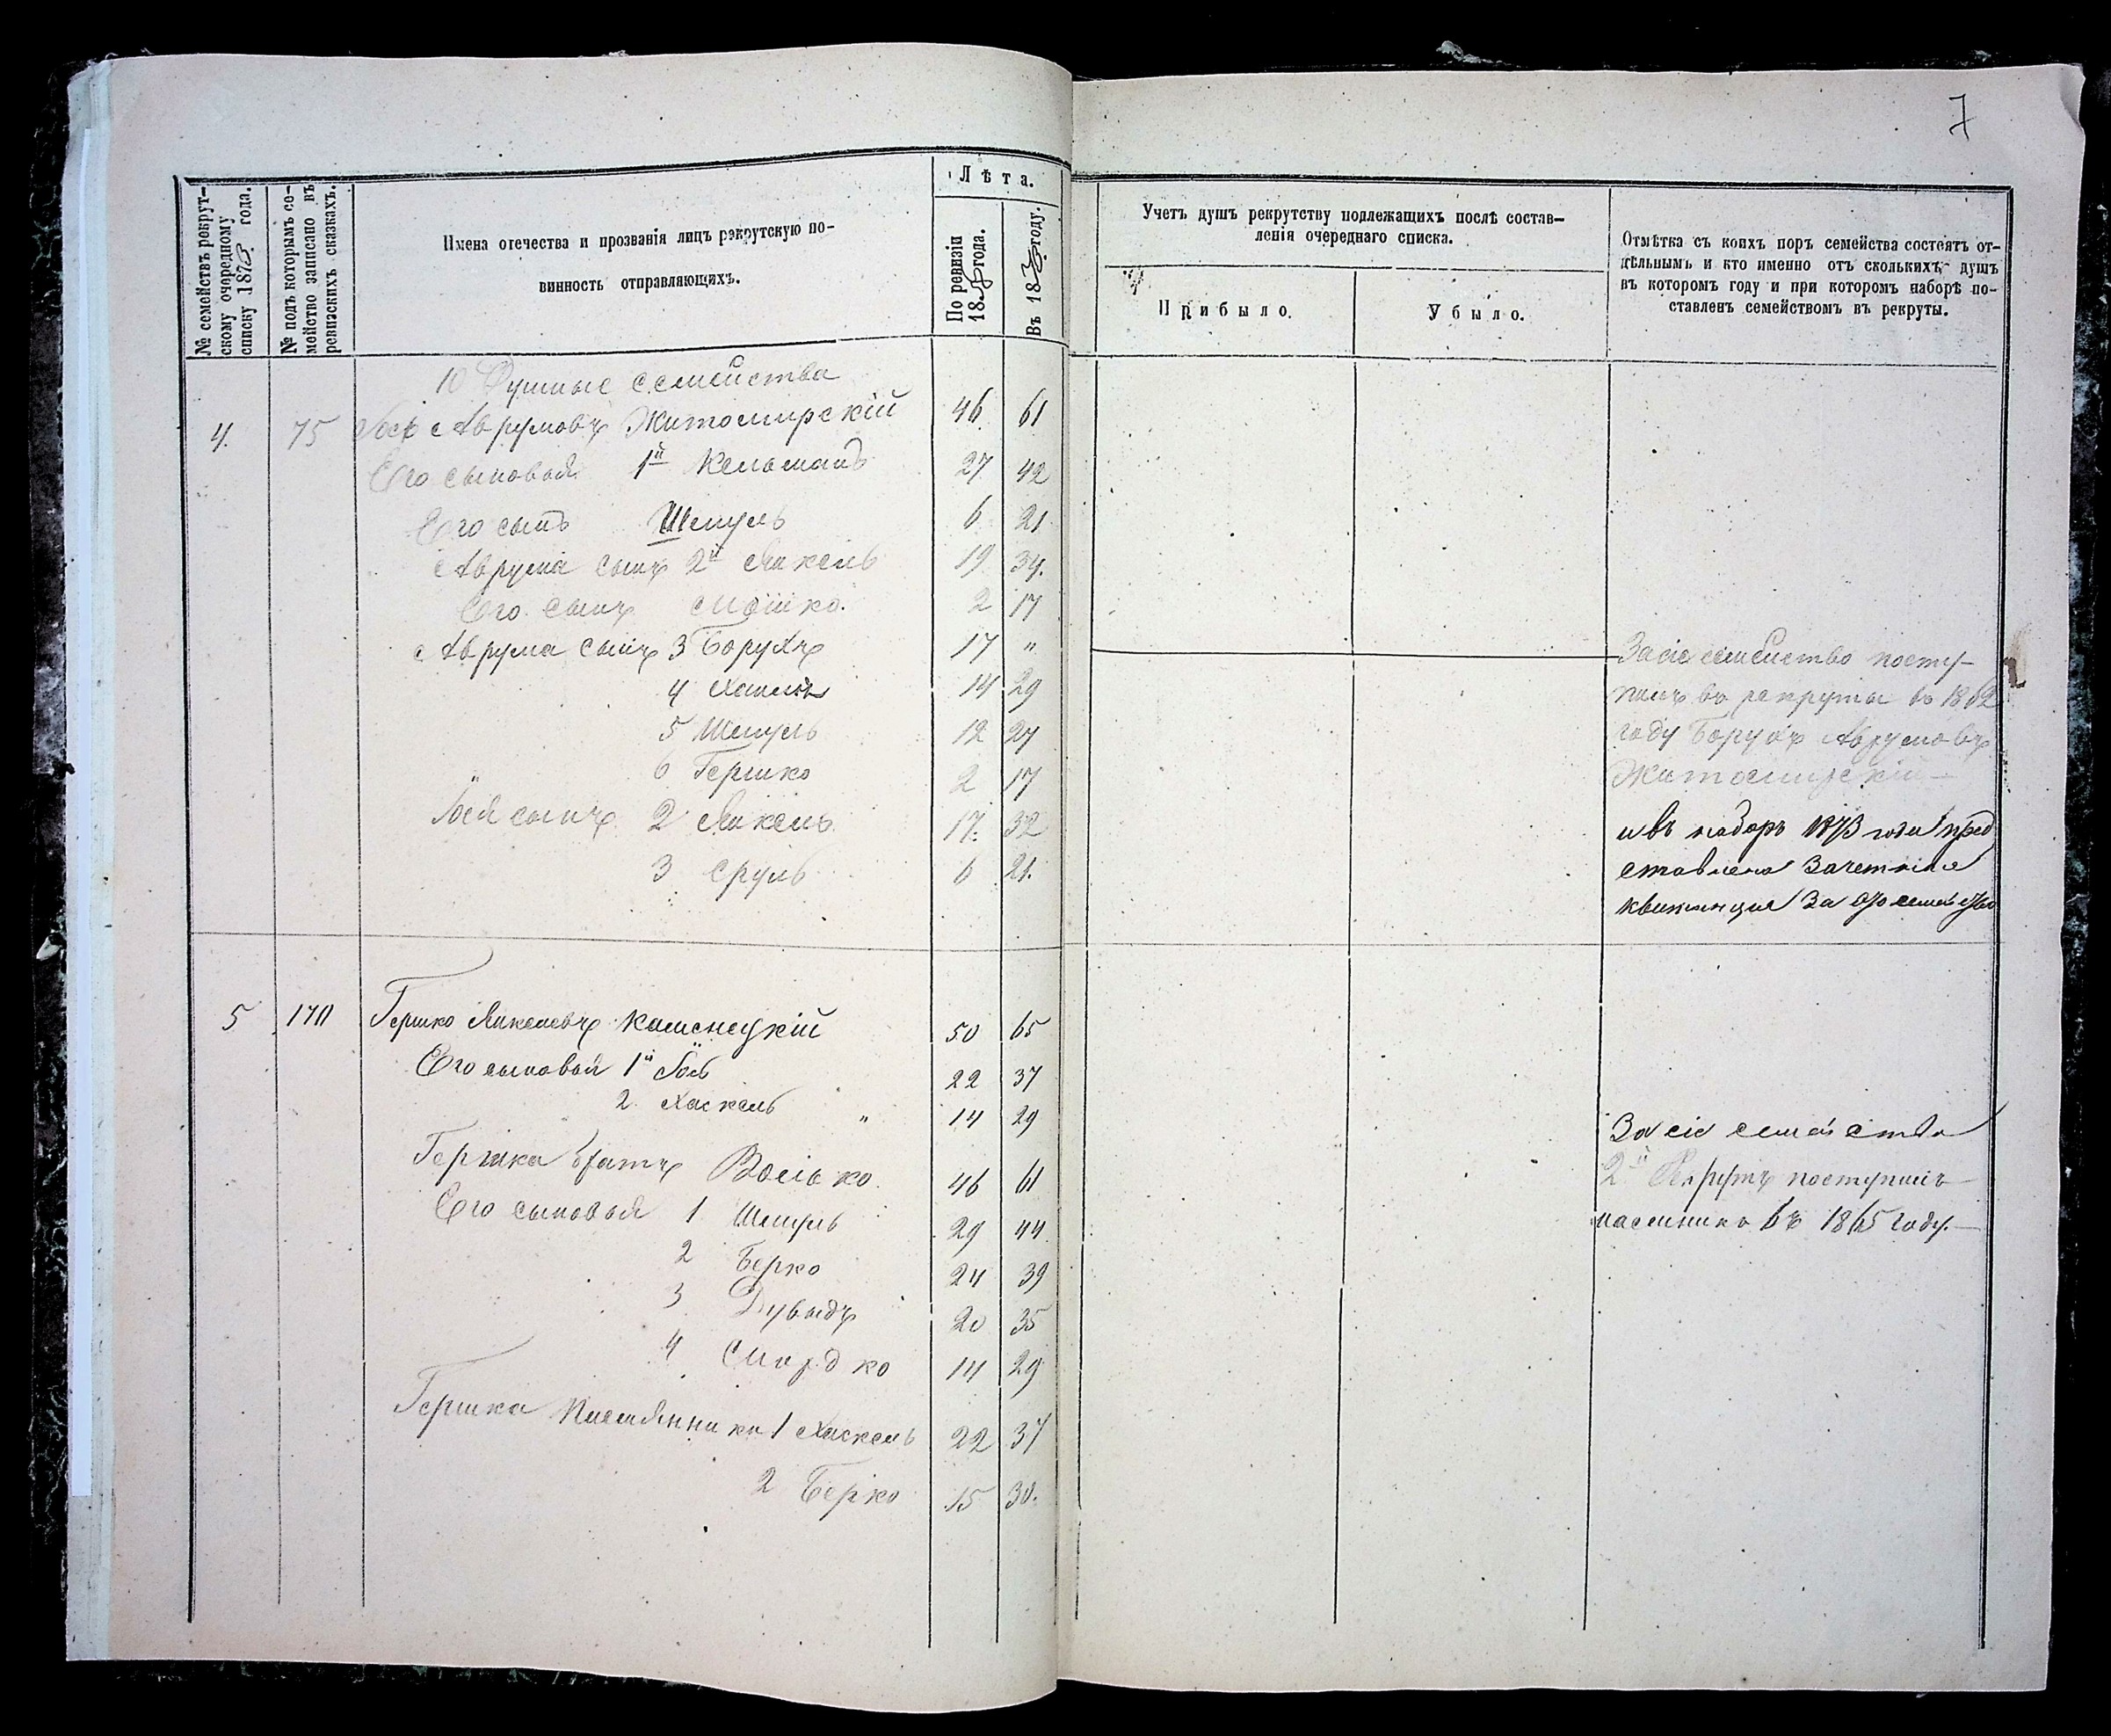 7
№ семействъ рекрут-
скому очередному
списку 1873 года.
№ подъ которымъ се-
мейство записано въ
ревизскихъ сказкахъ.
Имена отечества и прозванія лицъ рекрутскую по-
винность отправляющихъ.
Лѣта.
По ревизіи
1858 года.
Въ 1873 году.
Учетъ душъ рекрутству подлежащихъ послѣ состав-
ленія очереднаго списка.
Прибыло.
Убыло.
Отмѣтка съ коихъ поръ семейства состоятъ от-
дѣльнымъ и кто именно отъ сколькихъ душъ
въ которомъ году и при которомъ наборѣ по-
ставленъ семействомъ въ рекруты.
10 Душные семейства
4. 75 Аврумовъ Житомирскій 46 61
Его сыновья 1й Кельманъ 27 42
Его сынъ Шмуль 6 21
Аврума сынъ 2й Янкель 19 34.
Его сынъ Мошко. 2 17
Аврума сынъ 3 Борухъ 17 "
4 Хаимъ 14 29
5 Шмуль 12 27
6 Гершко 2 17
Іося сынъ 2 Янкель 17. 32
3 Сруль 6 21.
За сіе семейство посту-
пилъ въ рекруты въ 1862
году Борухъ Аврумовъ
Житомирскій —
и въ наборъ 1873 года пред
ставлена зачетная
квитанция за это семейство
5 170 Гершко Янкелевъ Каменецкій 50 65
Его сыновья 1й Іось 22 37
2. Хаскель " 14 29
Гершка братъ Волько 46 61
Его сыновья 1 Шмуль 29 44
2 Берко 24 39
3 Дувыдъ 20 35
4 Мордко 14 29
Гершка племянники 1 Хаскель 22 37
2 Берко 15 30.
За сіе семейство
2й Рекрутъ поступилъ
въ 1865 году. —